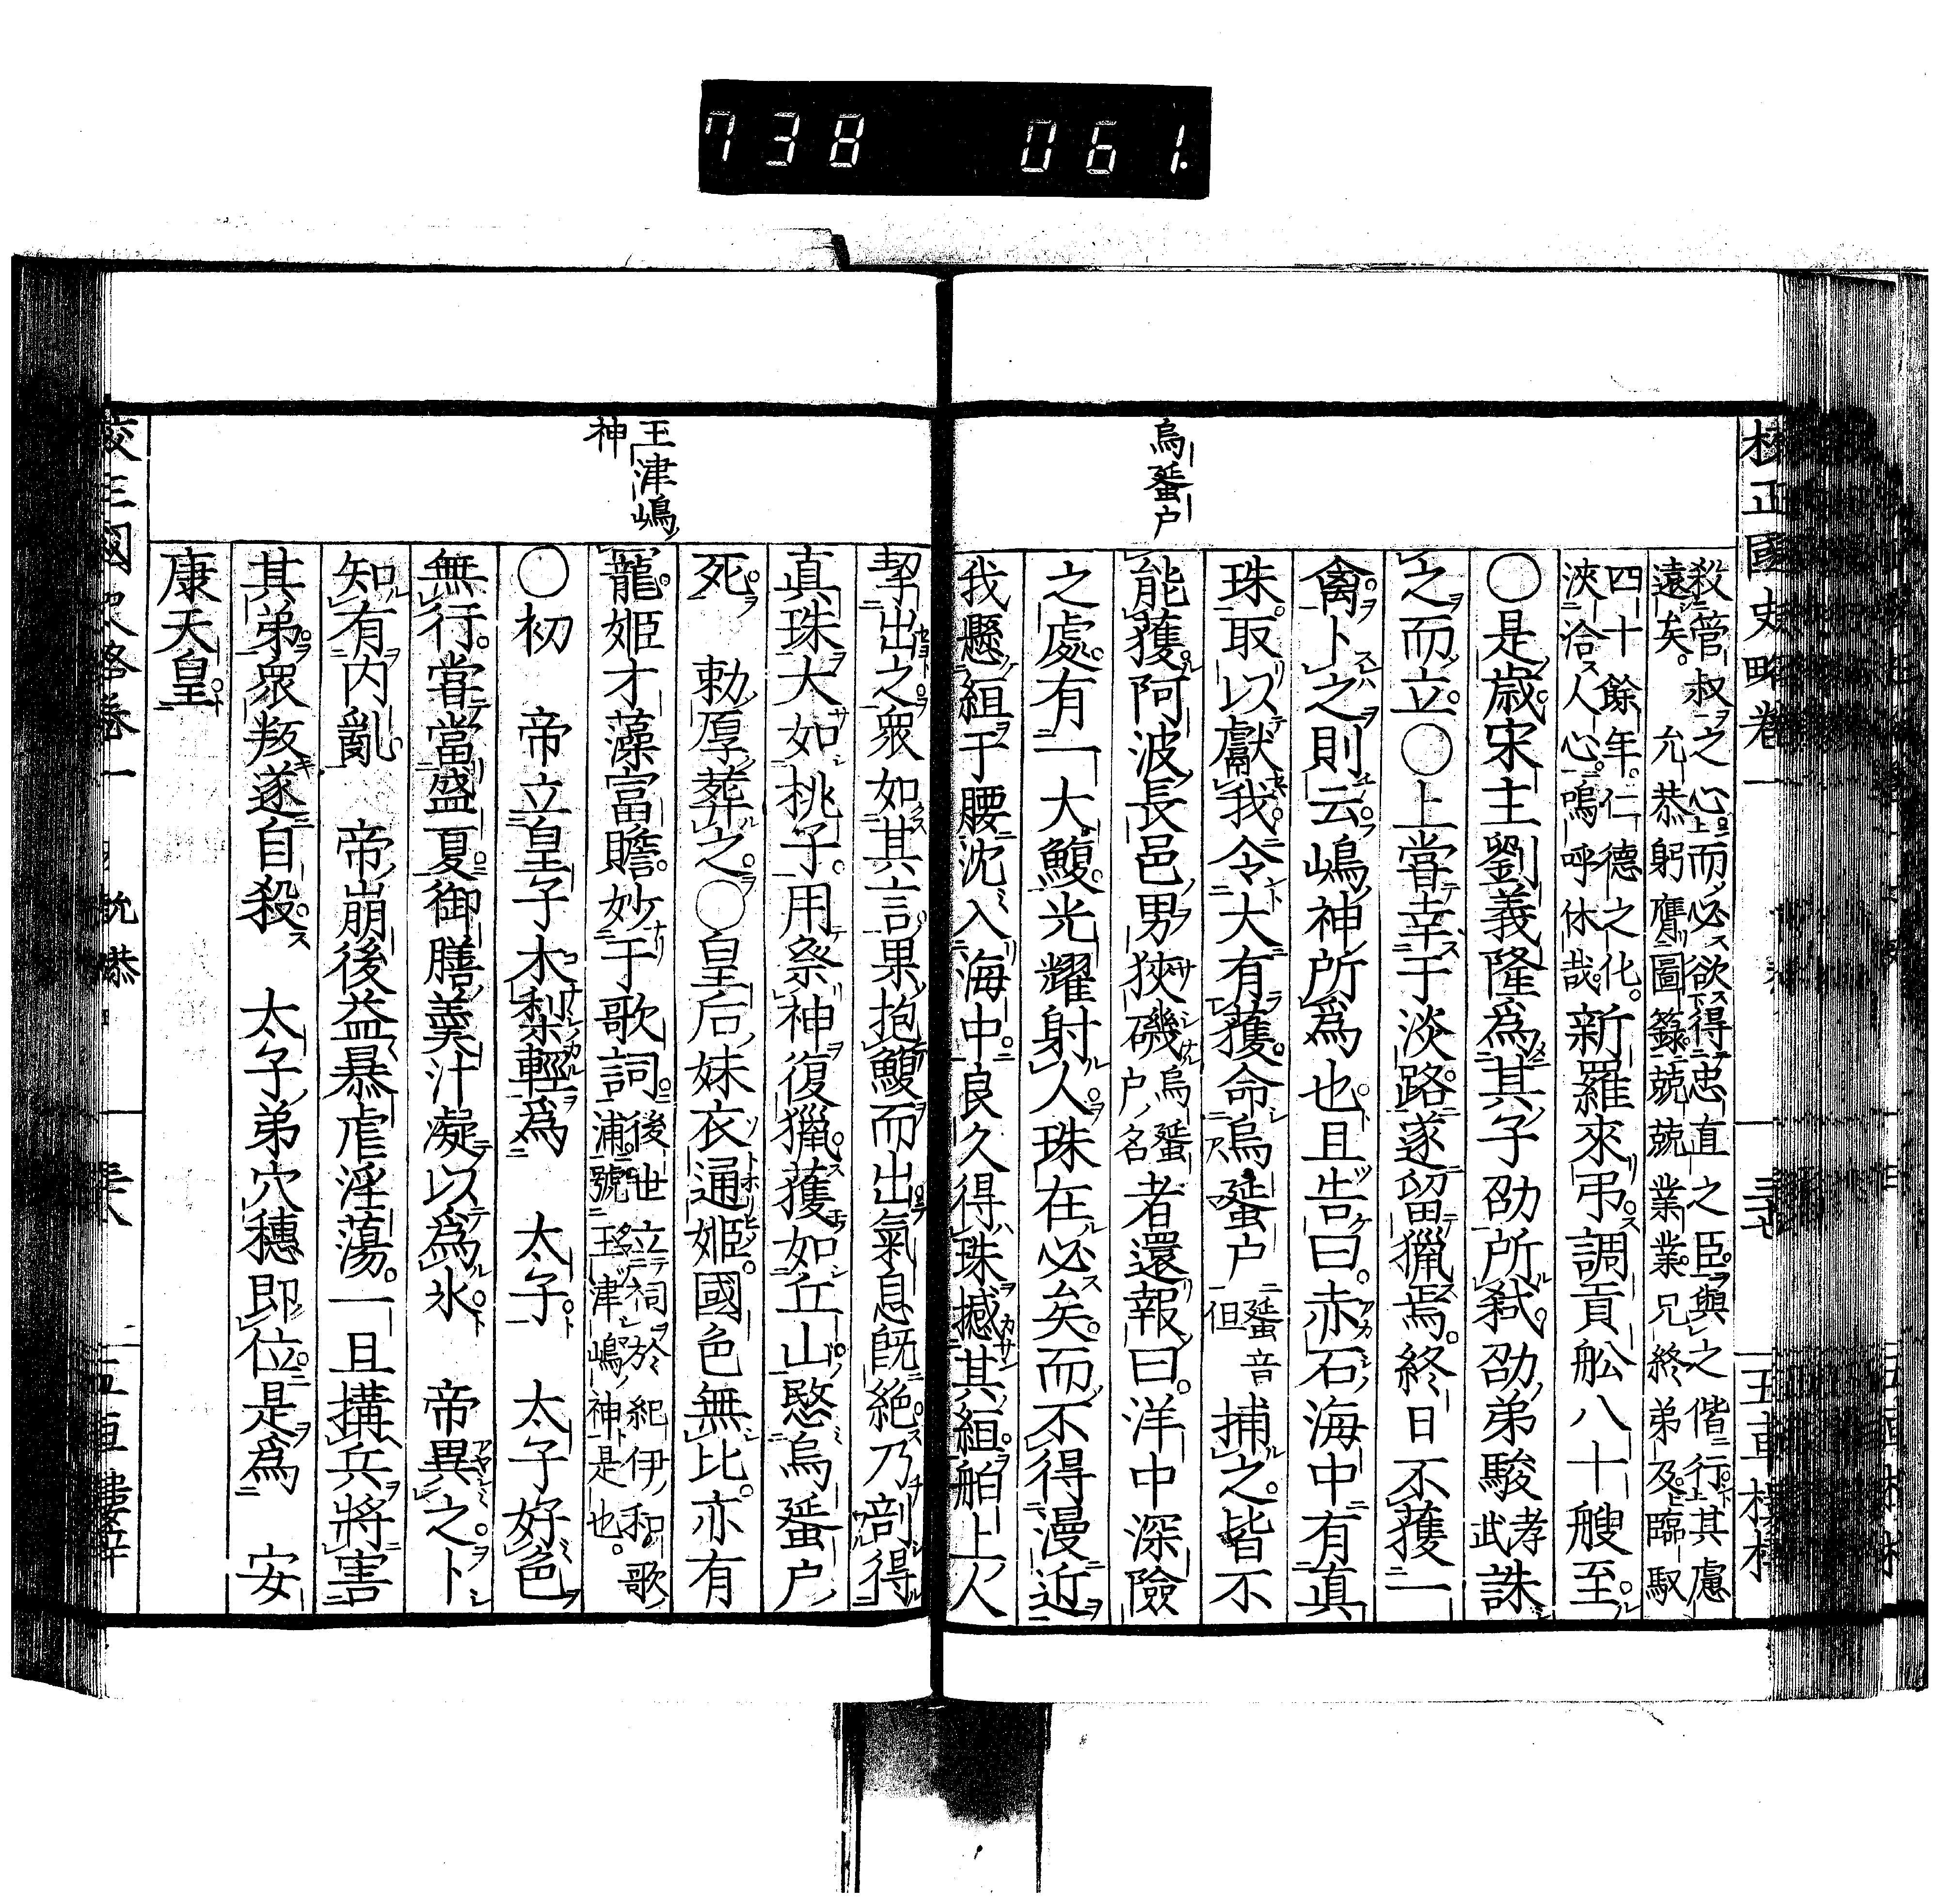 738 061.
校正國史略卷一
五車樓梓
烏蜑户
殺管叔之心而必欲得忠直之臣與之偕行其慮
遠矣。 允恭躬膺圖籙。兢兢業業。兄終弟及。臨馭
四十餘年。仁德之化。
浹洽人心。嗚呼休哉。
新羅來弔調貢舩八十艘至。
〇是歳宋主劉義隆爲其子劭所弑。劭弟駿孝武誅
之而立。〇上嘗幸于淡路。遂留獵焉。終日不獲一
禽。卜之則云。嶋神所爲也。且告曰。赤石海中有真
珠。取以獻我。令大有獲。命烏蜑户蜑音但捕之。皆不
能獲。阿波長邑男狹磯烏蜑户名者還報曰。洋中深險
之處。有一大鰒。光耀射人。珠在必矣。而不得漫近。
我懸組于腰。沈入海中。良久得珠撼其組。舶上人
挈出之。衆如其言。果抱鰒而出。氣息既絶。乃剖得
真珠大如桃子。用祭神復獵。獲如丘山。愍烏蜑户
死。 勅厚葬之。〇皇后妹衣通姫。國色無比。亦有
寵。姫才藻富贍。妙于歌詞。後世立祠於紀伊和歌
浦。號玉津嶋神是也。
〇初 帝立皇子木梨輕爲 太子。 太子好色
無行。嘗當盛夏。御膳羹汁凝以爲氷。 帝異之。卜
知有内亂。 帝崩後益暴虐淫蕩。一旦搆兵將害
其弟。衆叛。遂自殺。 太子弟穴穗即位。是爲 安
康天皇。
玉津嶋
神
卷一
允恭